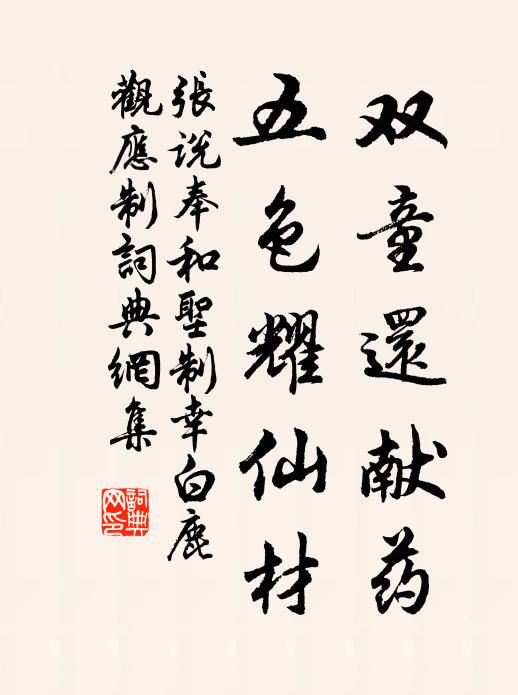 双童還献药
五色耀仙材
張説奉和聖制幸白鹿
觀應制詞典網集
詞典网印